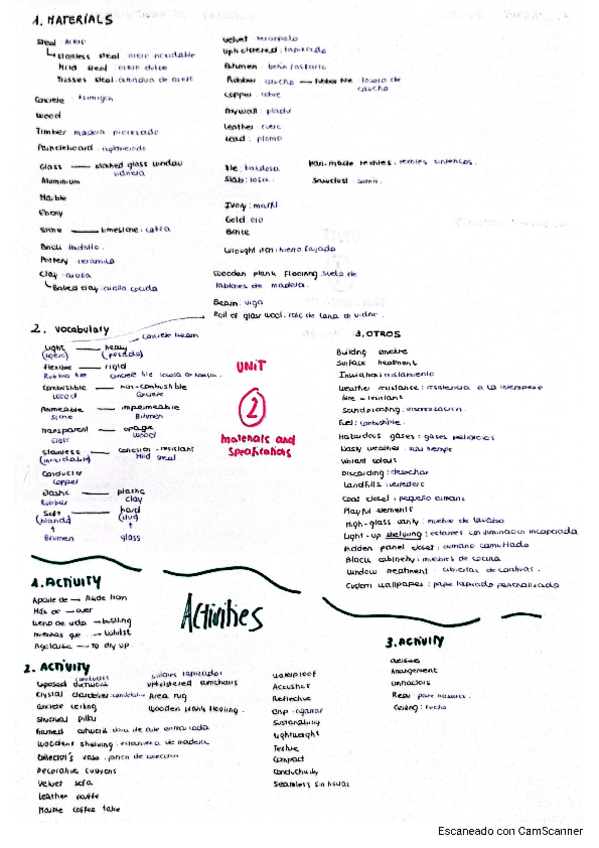 1. MATERIALS
Steal: acero
stainless steal acero inoxidable
Mild steal acero dulce
Trusses steal: armadura de acero
Concrete: hormigon
Wood
Timber madera procesada
Particleboard: aglomerado
Glass — stained glass window
vidriera
Aluminium
Marble
Ebony
Stone — limestone: caliza
Brick: ladrillo
Pottery: ceramica
Clay: arcilla
Baked clay: arcilla cocida
Velvet: terciopelo
Upholstered: tapizado
Bitumen:
Rubber caucho — rubber tile: losera de caucho
Copper: cobre
Drywall: pladur
Leather: cuero
Lead: plomo
Tile: baldosa
Slab: losa
Man-made textiles: textiles sinteticos.
Sawdust: serrin.
Ivory: marfil
Gold: oro
Wrought iron: hierro forjado
Wooden plank flooring: suelo de tablones de madera.
Beam: viga
Roll of glass wool: rollo de lana de vidrio.
2. Vocabulary
concrete beam
Light — heavy
(ligero) (pesado)
flexible — rigid
Rubber tile concrete tile
Combustible — non-combustible
wood concrete
Permeable — impermeable
Stone Bitumen
Transparent — opaque
Glass wood
Stainless — corrosion-resistant
(inoxidable) Mild steal
Conductor
copper
Elastic — plastic
Rubber clay
Soft — hard
(blando) (duro)
Bitumen glass
UNIT
2
Materials and
Specifications
3. OTROS
Building envelope
Surface treatment
Insulation: aislamiento
Weather resistance: resistencia a la intemperie
Fire-resistant
Soundproofing: insonorizacion.
Fuel: combustible.
Hazardous gases: gases peligrosos
Nasty weather: mal tiempo
Vibrant colours
Discarding: desechar
Landfills: vertedero
Coat closet: pequeño armario
Playful elements
High-glass vanity: mueble de lavabo
Light-up shelving: estantes con iluminacion incorporada
Hidden panel closet: armario camuflado
Black cabinetry: muebles de cocina
Window treatment: cubiertas de cortinas.
Custom wallpaper: papel tapizado personalizado
Activities
1. ACTIVITY
Aparte de → Aside from
Más de → over
Lleno de vida → bustling
Mientras que → Whilst
Agotarse → to dry up
2. ACTIVITY
Exposed ductwork
Crystal chandelier: candelabro
Concrete ceiling
Structural pillar
Framed artwork obra de arte enmarcada
Wooden shelving: estanteria de madera
Collector's vase: jarron de coleccion
Decorative cushions
Velvet sofa
Leather pouffe
Marble coffee table
Upholstered armchairs
Area rug
Wooden plank flooring.
Waterproof
Acoustics
Reflective
Grip: agarrar
Sustainability
Lightweight
Texture
Compact
Conductivity
Seamless sin fisuras
3. ACTIVITY
Arrangement
Contractors
Ceiling: techo
Escaneado con CamScanner